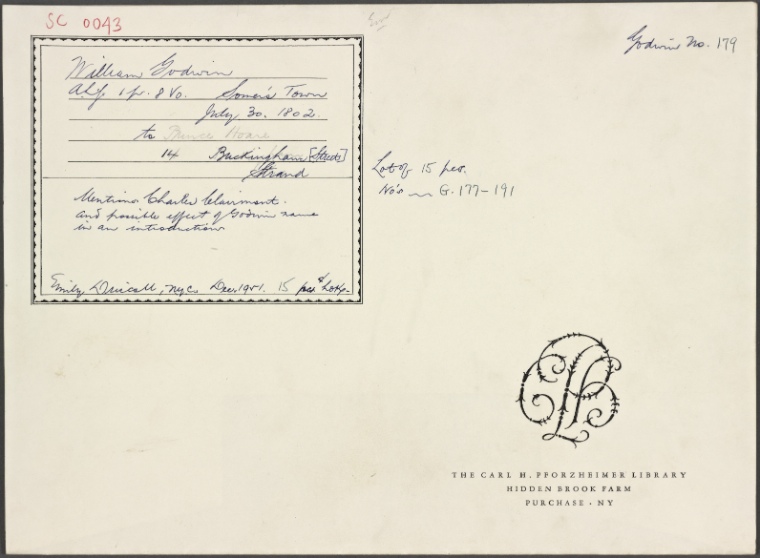 SC 0043
Godwin No. 179
William Godwin
1 p. 8 Vo. Somers Town
July 30. 1802.
to Prince Hoare
14 Buckingham [Street]
Strand
Mentions Charles Clairmont.
and possible effect of Godwin name
in an introduction
Emily Driscoll, NYC. Dec. 1951. 15 pcs
Lot of 15 pcs.
No's — G. 177-191
THE CARL H. PFORZHEIMER LIBRARY
HIDDEN BROOK FARM
PURCHASE · NY